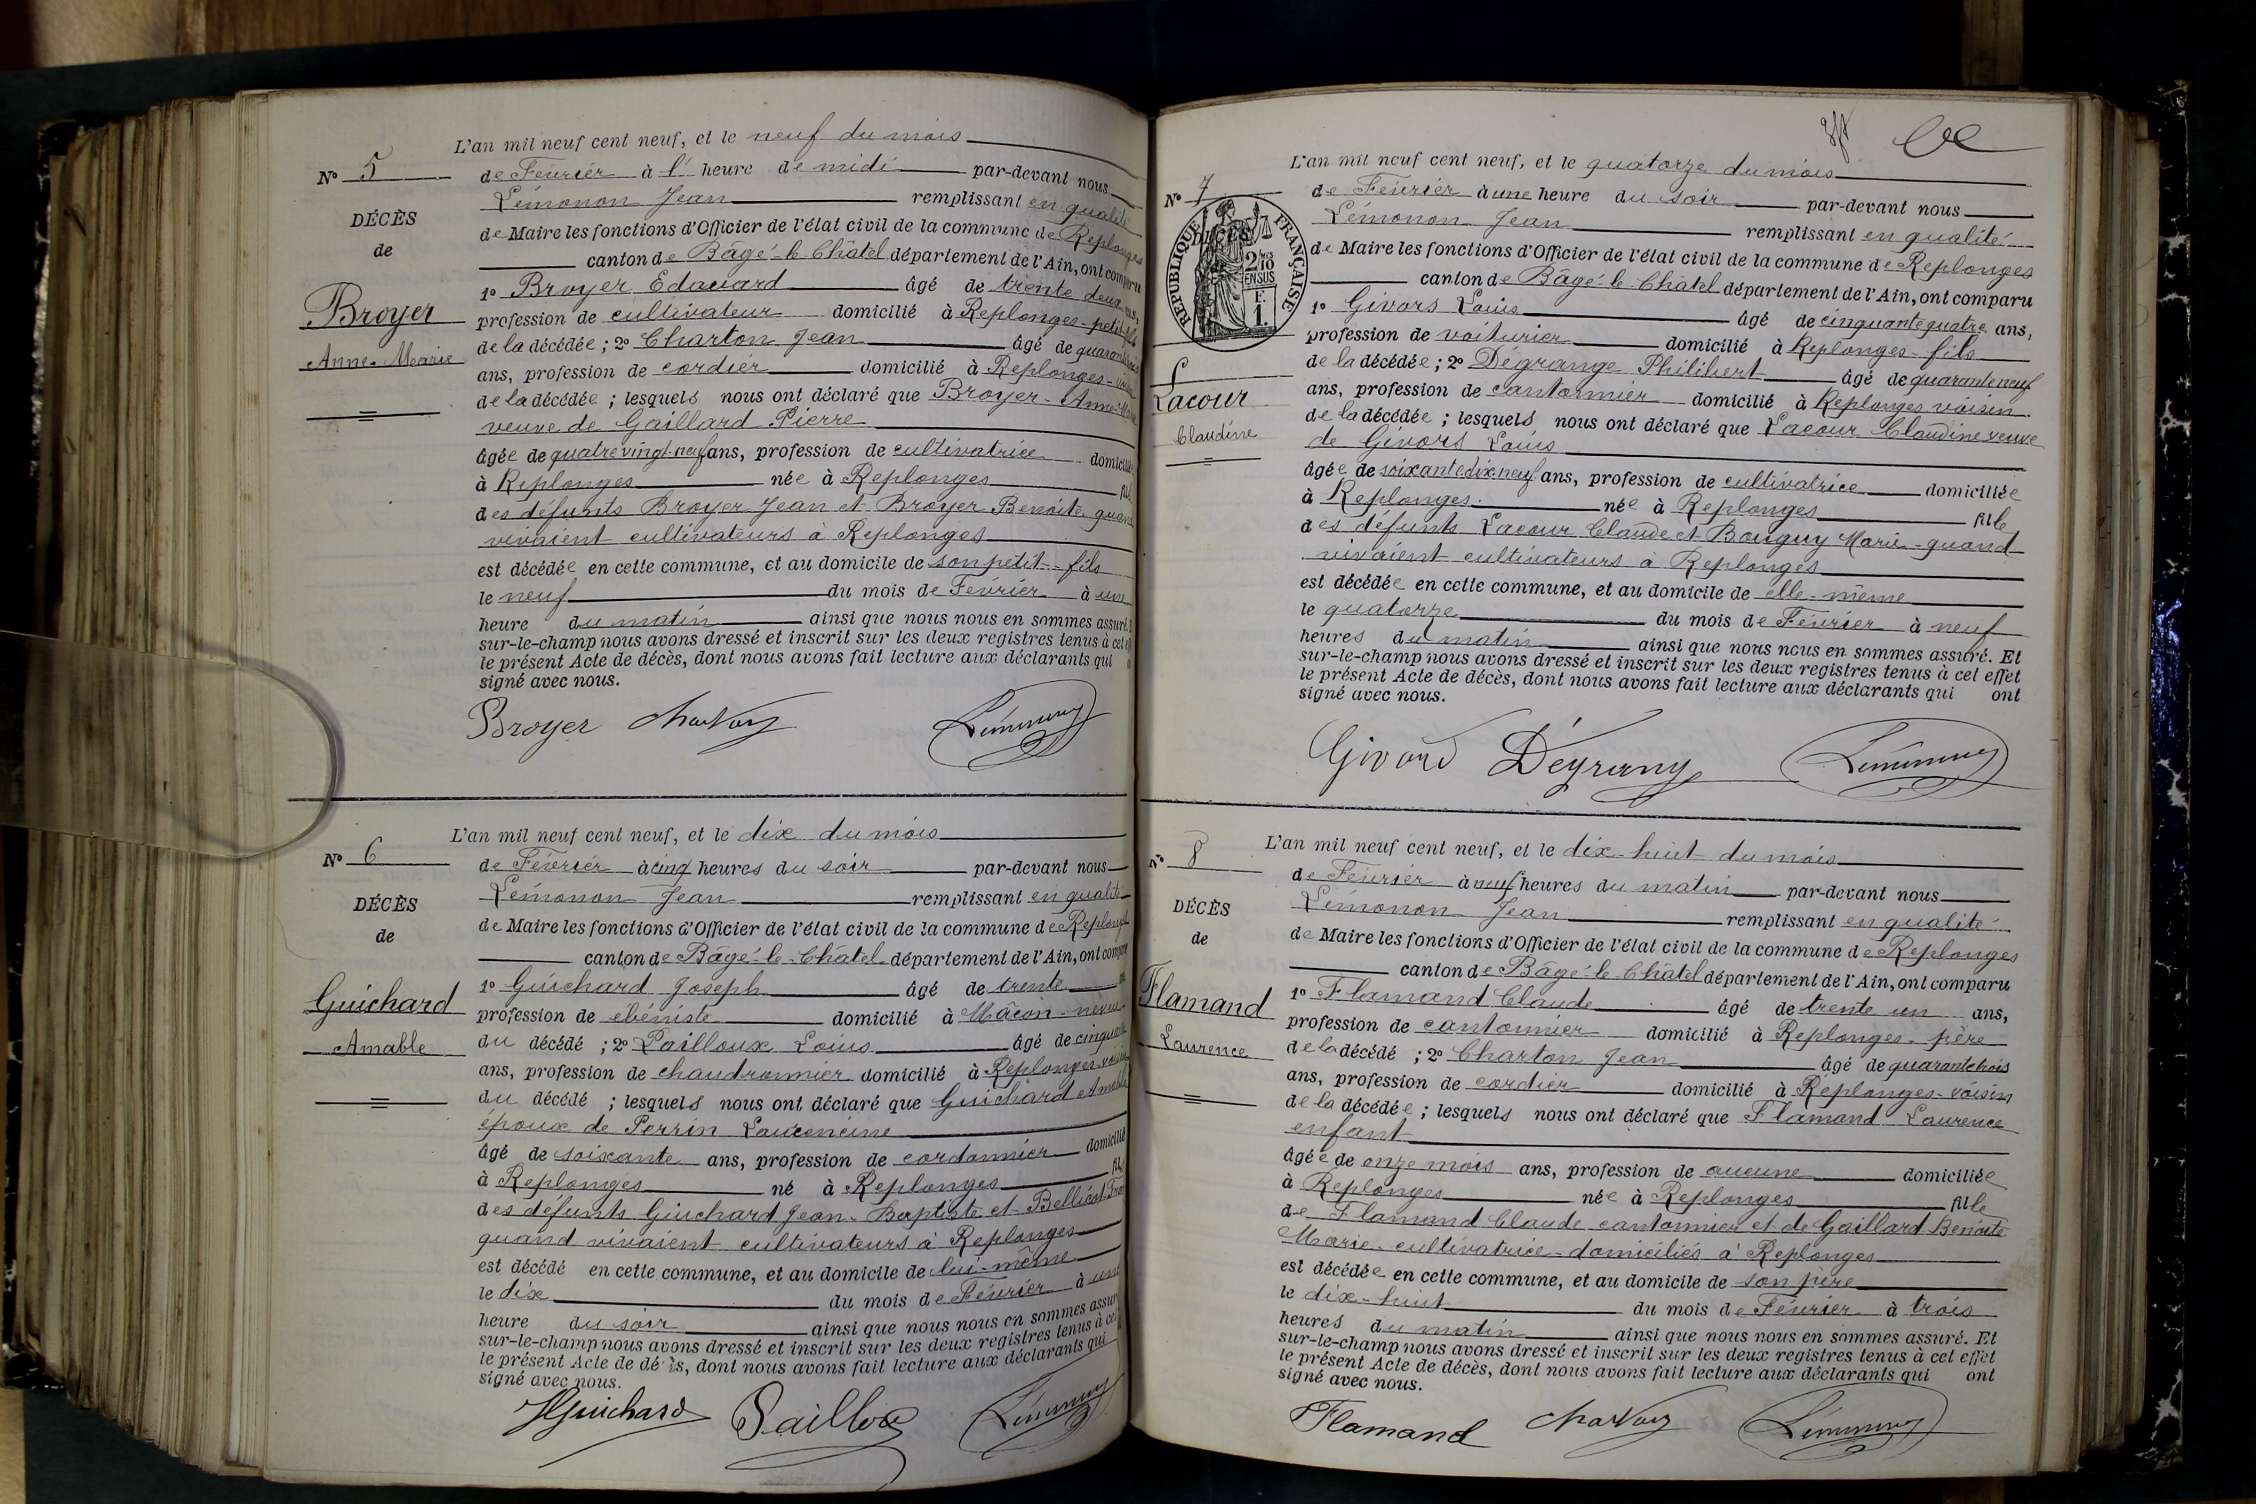 L'an mil neuf cent neuf, et le neuf du mois
N° 5
de Février à l' heure de midi par-devant nous
Lémonon Jean remplissant en qualité
DÉCÈS
de Maire les fonctions d'Officier de l'état civil de la commune de Replonges
de
canton de Bâgé-le-Châtel département de l'Ain, ont comparu
1° Broyer Edouard âgé de trente deux ans,
Broyer
profession de cultivateur domicilié à Replonges - petit-fils
Anne-Marie
de la décédée ; 2° Charton Jean âgé de quarante trois
ans, profession de cordier domicilié à Replonges - voisin
de la décédée ; lesquels nous ont déclaré que Broyer - Anne-Marie
veuve de Gaillard Pierre
âgée de quatre vingt-neuf ans, profession de cultivatrice domiciliée
à Replonges née à Replonges fil
des défunts Broyer Jean et Broyer Benoite quand
vivaient cultivateurs à Replonges
est décédée en cette commune, et au domicile de son petit-fils
le neuf du mois de Février à une
heure du matin ainsi que nous nous en sommes assuré.
sur-le-champ nous avons dressé et inscrit sur les deux registres tenus à cet
le présent Acte de décès, dont nous avons fait lecture aux déclarants qui
signé avec nous.
Broyer Charton Lémonon
L'an mil neuf cent neuf, et le dix du mois
N° 6
de Février à cinq heures du soir par-devant nous
Lémonon Jean remplissant en qualité
DÉCÈS
de Maire les fonctions d'Officier de l'état civil de la commune de Replonges
de
canton de Bâgé-le-Châtel département de l'Ain, ont comparu
1° Guichard Joseph âgé de trente
Guichard
profession de ébéniste domicilié à Mâcon - neveu
Amable
du décédé ; 2° Pailloux Louis âgé de cinquante
ans, profession de chaudronnier domicilié à Replonges - voisin
du décédé ; lesquels nous ont déclaré que Guichard Amable
époux de Perrin Laurencine
âgé de soixante ans, profession de cordonnier domicilié
à Replonges né à Replonges fils
des défunts Guichard Jean-Baptiste et
quand vivaient cultivateurs à Replonges
est décédé en cette commune, et au domicile de lui-même
le dix du mois de Février à une
heure du soir ainsi que nous nous en sommes assuré
sur-le-champ nous avons dressé et inscrit sur les deux registres tenus à cet
le présent Acte de décès, dont nous avons fait lecture aux déclarants qui
signé avec nous.
JGuichard Pailloux Lémonon
L'an mil neuf cent neuf, et le quatorze du mois
N° 7
de Février à une heure du soir par-devant nous
Lémonon Jean remplissant en qualité
RÉPUBLIQUE FRANÇAISE
DÉCÈS
2/10 EN SUS
F. 1.
de Maire les fonctions d'Officier de l'état civil de la commune de Replonges
canton de Bâgé-le-Châtel département de l'Ain, ont comparu
1° Givors Louis âgé de cinquante quatre ans,
profession de voiturier domicilié à Replonges - fils
Lacour
de la décédée ; 2° Dégrange Philibert âgé de quarante neuf
Claudine
ans, profession de cantonnier domicilié à Replonges voisin
de la décédée ; lesquels nous ont déclaré que Lacour Claudine veuve
de Givors Louis
âgée de soixante dix-neuf ans, profession de cultivatrice domiciliée
à Replonges née à Replonges fille
des défunts Lacour Claude et Bouguy Marie - quand
vivaient cultivateurs à Replonges
est décédée en cette commune, et au domicile de elle-même
le quatorze du mois de Février à neuf
heures du matin ainsi que nous nous en sommes assuré. Et
sur-le-champ nous avons dressé et inscrit sur les deux registres tenus à cet effet
le présent Acte de décès, dont nous avons fait lecture aux déclarants qui ont
signé avec nous.
Givord Dégrang Lémonon
L'an mil neuf cent neuf, et le dix-huit du mois
N° 8
de Février à neuf heures du matin par-devant nous
Lémonon Jean remplissant en qualité
DÉCÈS
de Maire les fonctions d'Officier de l'état civil de la commune de Replonges
de
canton de Bâgé-le-Châtel département de l'Ain, ont comparu
1° Flamand Claude âgé de trente un ans,
Flamand
profession de cantonnier domicilié à Replonges - père
Laurence
de la décédé ; 2° Charton Jean âgé de quarante trois
ans, profession de cordier domicilié à Replonges - voisin
de la décédée ; lesquels nous ont déclaré que Flamand Laurence
enfant
âgée de onze mois ans, profession de aucune domiciliée
à Replonges née à Replonges fille
de Flamand Claude cantonnier et de Gaillard Benoite
Marie - cultivatrice - domiciliés à Replonges
est décédée en cette commune, et au domicile de son père
le dix-huit du mois de Février à trois
heures du matin ainsi que nous nous en sommes assuré. Et
sur-le-champ nous avons dressé et inscrit sur les deux registres tenus à cet effet
le présent Acte de décès, dont nous avons fait lecture aux déclarants qui ont
signé avec nous.
Flamand Charton Lémonon